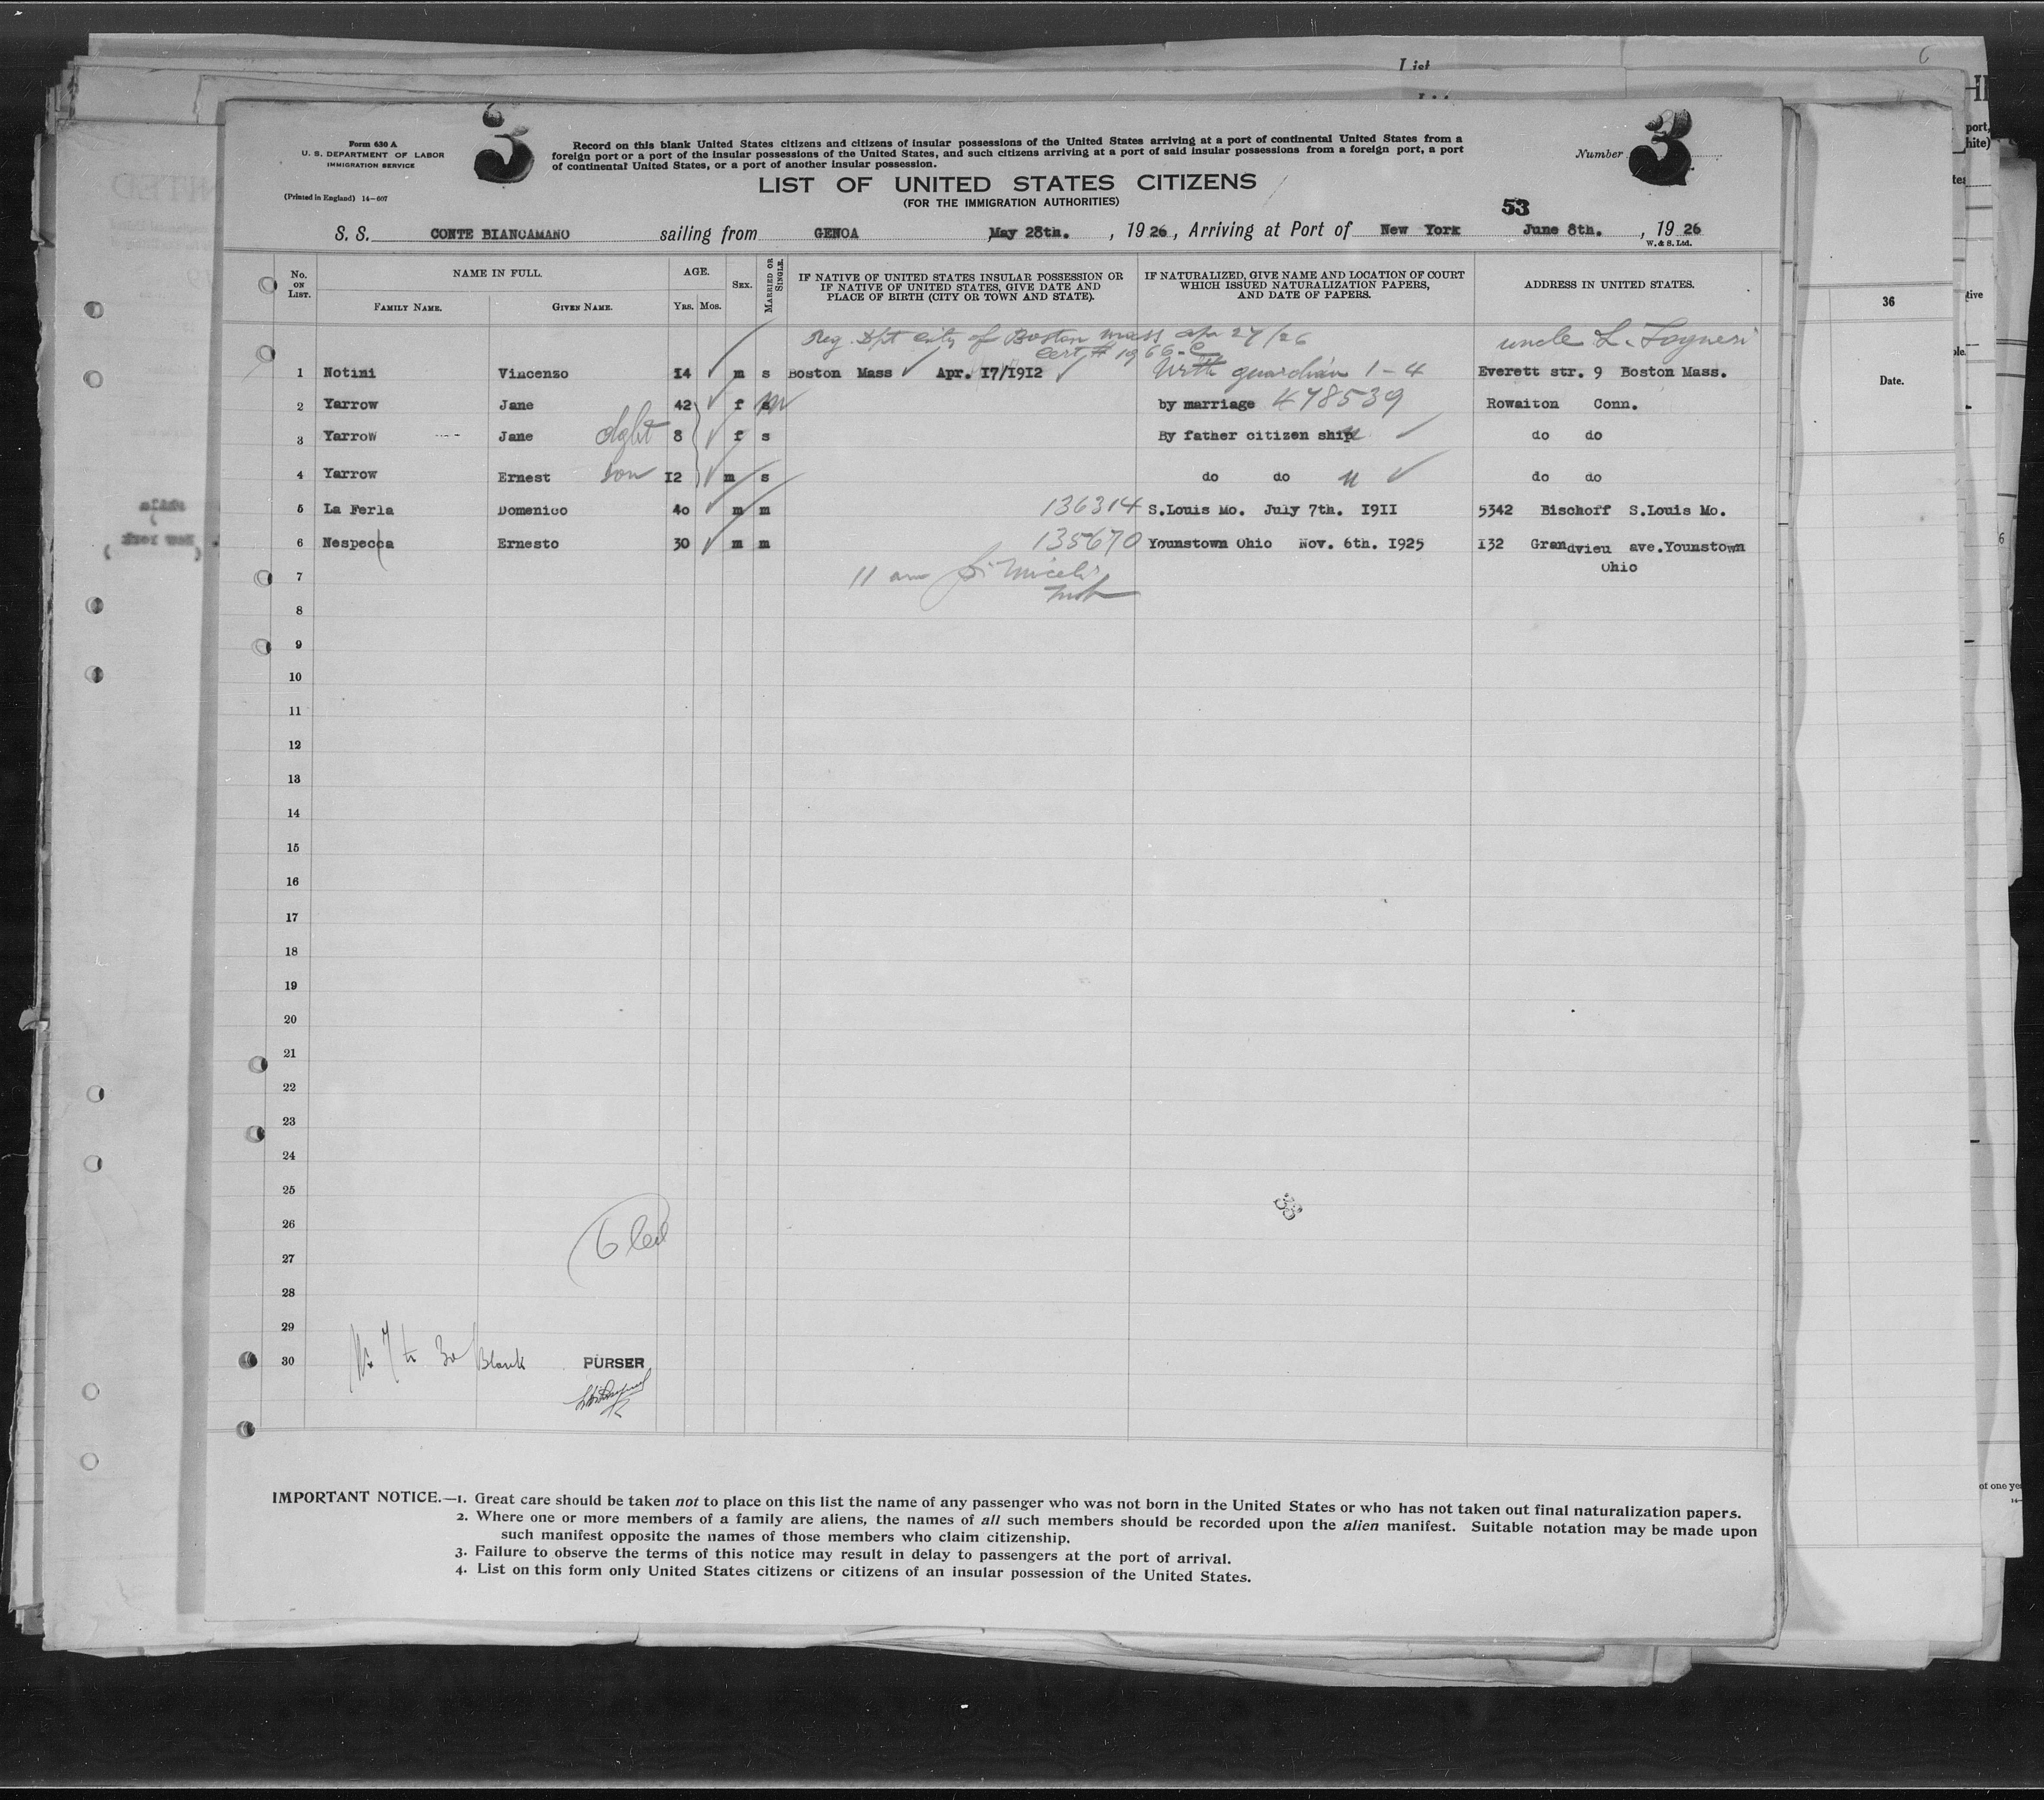 List
6
Form 630 A
U. S. DEPARTMENT OF LABOR
IMMIGRATION SERVICE
(Printed in England) 14-607
3
Record on this blank United States citizens and citizens of insular possessions of the United States arriving at a port of continental United States from a
foreign port or a port of the insular possessions of the United States, and such citizens arriving at a port of said insular possessions from a foreign port, a port
of continental United States, or a port of another insular possession.
Number 3
LIST OF UNITED STATES CITIZENS
(FOR THE IMMIGRATION AUTHORITIES)
53
S. S. CONTE BIANCAMANO sailing from GENOA May 28th. , 19 26 , Arriving at Port of New York June 8th. , 19 26
W. & S. Ltd.
No. ON LIST. NAME IN FULL. AGE. SEX. MARRIED OR SINGLE. IF NATIVE OF UNITED STATES INSULAR POSSESSION OR IF NATIVE OF UNITED STATES, GIVE DATE AND PLACE OF BIRTH (CITY OR TOWN AND STATE). IF NATURALIZED, GIVE NAME AND LOCATION OF COURT WHICH ISSUED NATURALIZATION PAPERS, AND DATE OF PAPERS. ADDRESS IN UNITED STATES.
FAMILY NAME. GIVEN NAME. YRS. MOS.
Reg. Dpt City of Boston Mass Apr 27/26 uncle L.
Cert # 1966-C
1 Notini Vincenzo 14 m s Boston Mass Apr. I7/I9I2 With guardian 1-4 Everett str. 9 Boston Mass.
2 Yarrow Jane 42 f m by marriage 478539 Rowaiton Conn.
3 Yarrow Jane dght 8 f s By father citizen ship do do
4 Yarrow Ernest son I2 m s do do do do
5 La Ferla Domenico 4o m m 136314 S.Louis Mo. July 7th. I9II 5342 Bischoff S.Louis Mo.
6 Nespecca Ernesto 30 m m 135670 Younstown Ohio Nov. 6th. I925 I32 Grandvieu ave.Younstown
Ohio
7 11 am
8
9
10
11
12
13
14
15
16
17
18
19
20
21
22
23
24
25
26
27
28
29
30
33
7 to 30 Blank
PURSER
IMPORTANT NOTICE.—1. Great care should be taken not to place on this list the name of any passenger who was not born in the United States or who has not taken out final naturalization papers.
2. Where one or more members of a family are aliens, the names of all such members should be recorded upon the alien manifest. Suitable notation may be made upon
such manifest opposite the names of those members who claim citizenship.
3. Failure to observe the terms of this notice may result in delay to passengers at the port of arrival.
4. List on this form only United States citizens or citizens of an insular possession of the United States.
36
Date.